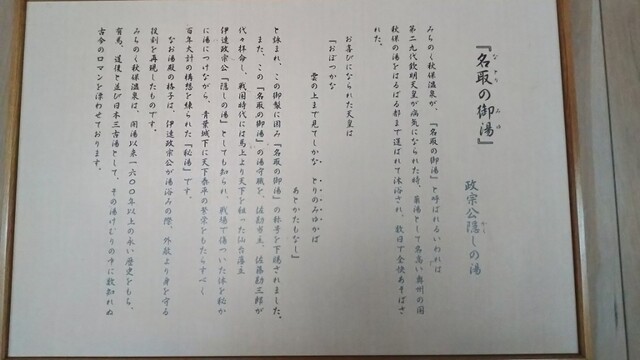 『名取の御湯』
なとり
みゆ
政宗公隠しの湯
かく
みちのく秋保温泉が、『名取の御湯』と呼ばれるいわれは
第二九代欽明天皇が病気になられた時、薬湯として名高い奥州の国
秋保の湯をはるばる都まで運ばれて沐浴され、数日で全快あそばさ
れた。
お喜びになられた天皇は
「おぼつかな
雲の上まで見てしかな とりのみゆかば
あとかたもなし」
と詠まれ、この御製に因み『名取の御湯』の称号を下賜されました。
また、この『名取の御湯』の湯守職を、佐勘当主、佐藤勘三郎が
代々拝命し、戦国時代には馬上より天下を狙った仙台藩主
伊達政宗公『隠しの湯』としても知られ、戦場で傷ついた体を秘か
に湯につけながら、青葉城下に天下泰平の繁栄をもたらすべく
百年大計の構想を練られた『秘湯』です。
なお湯殿の格子は、伊達政宗公が湯浴みの際、外敵より身を守る
役割を再現したものです。
みちのく秋保温泉は、開湯以来一六〇〇年以上の永い歴史をもち、
有馬、道後と並び日本三古湯として、その湯けむりの中に数知れぬ
古今のロマンを漂わせております。